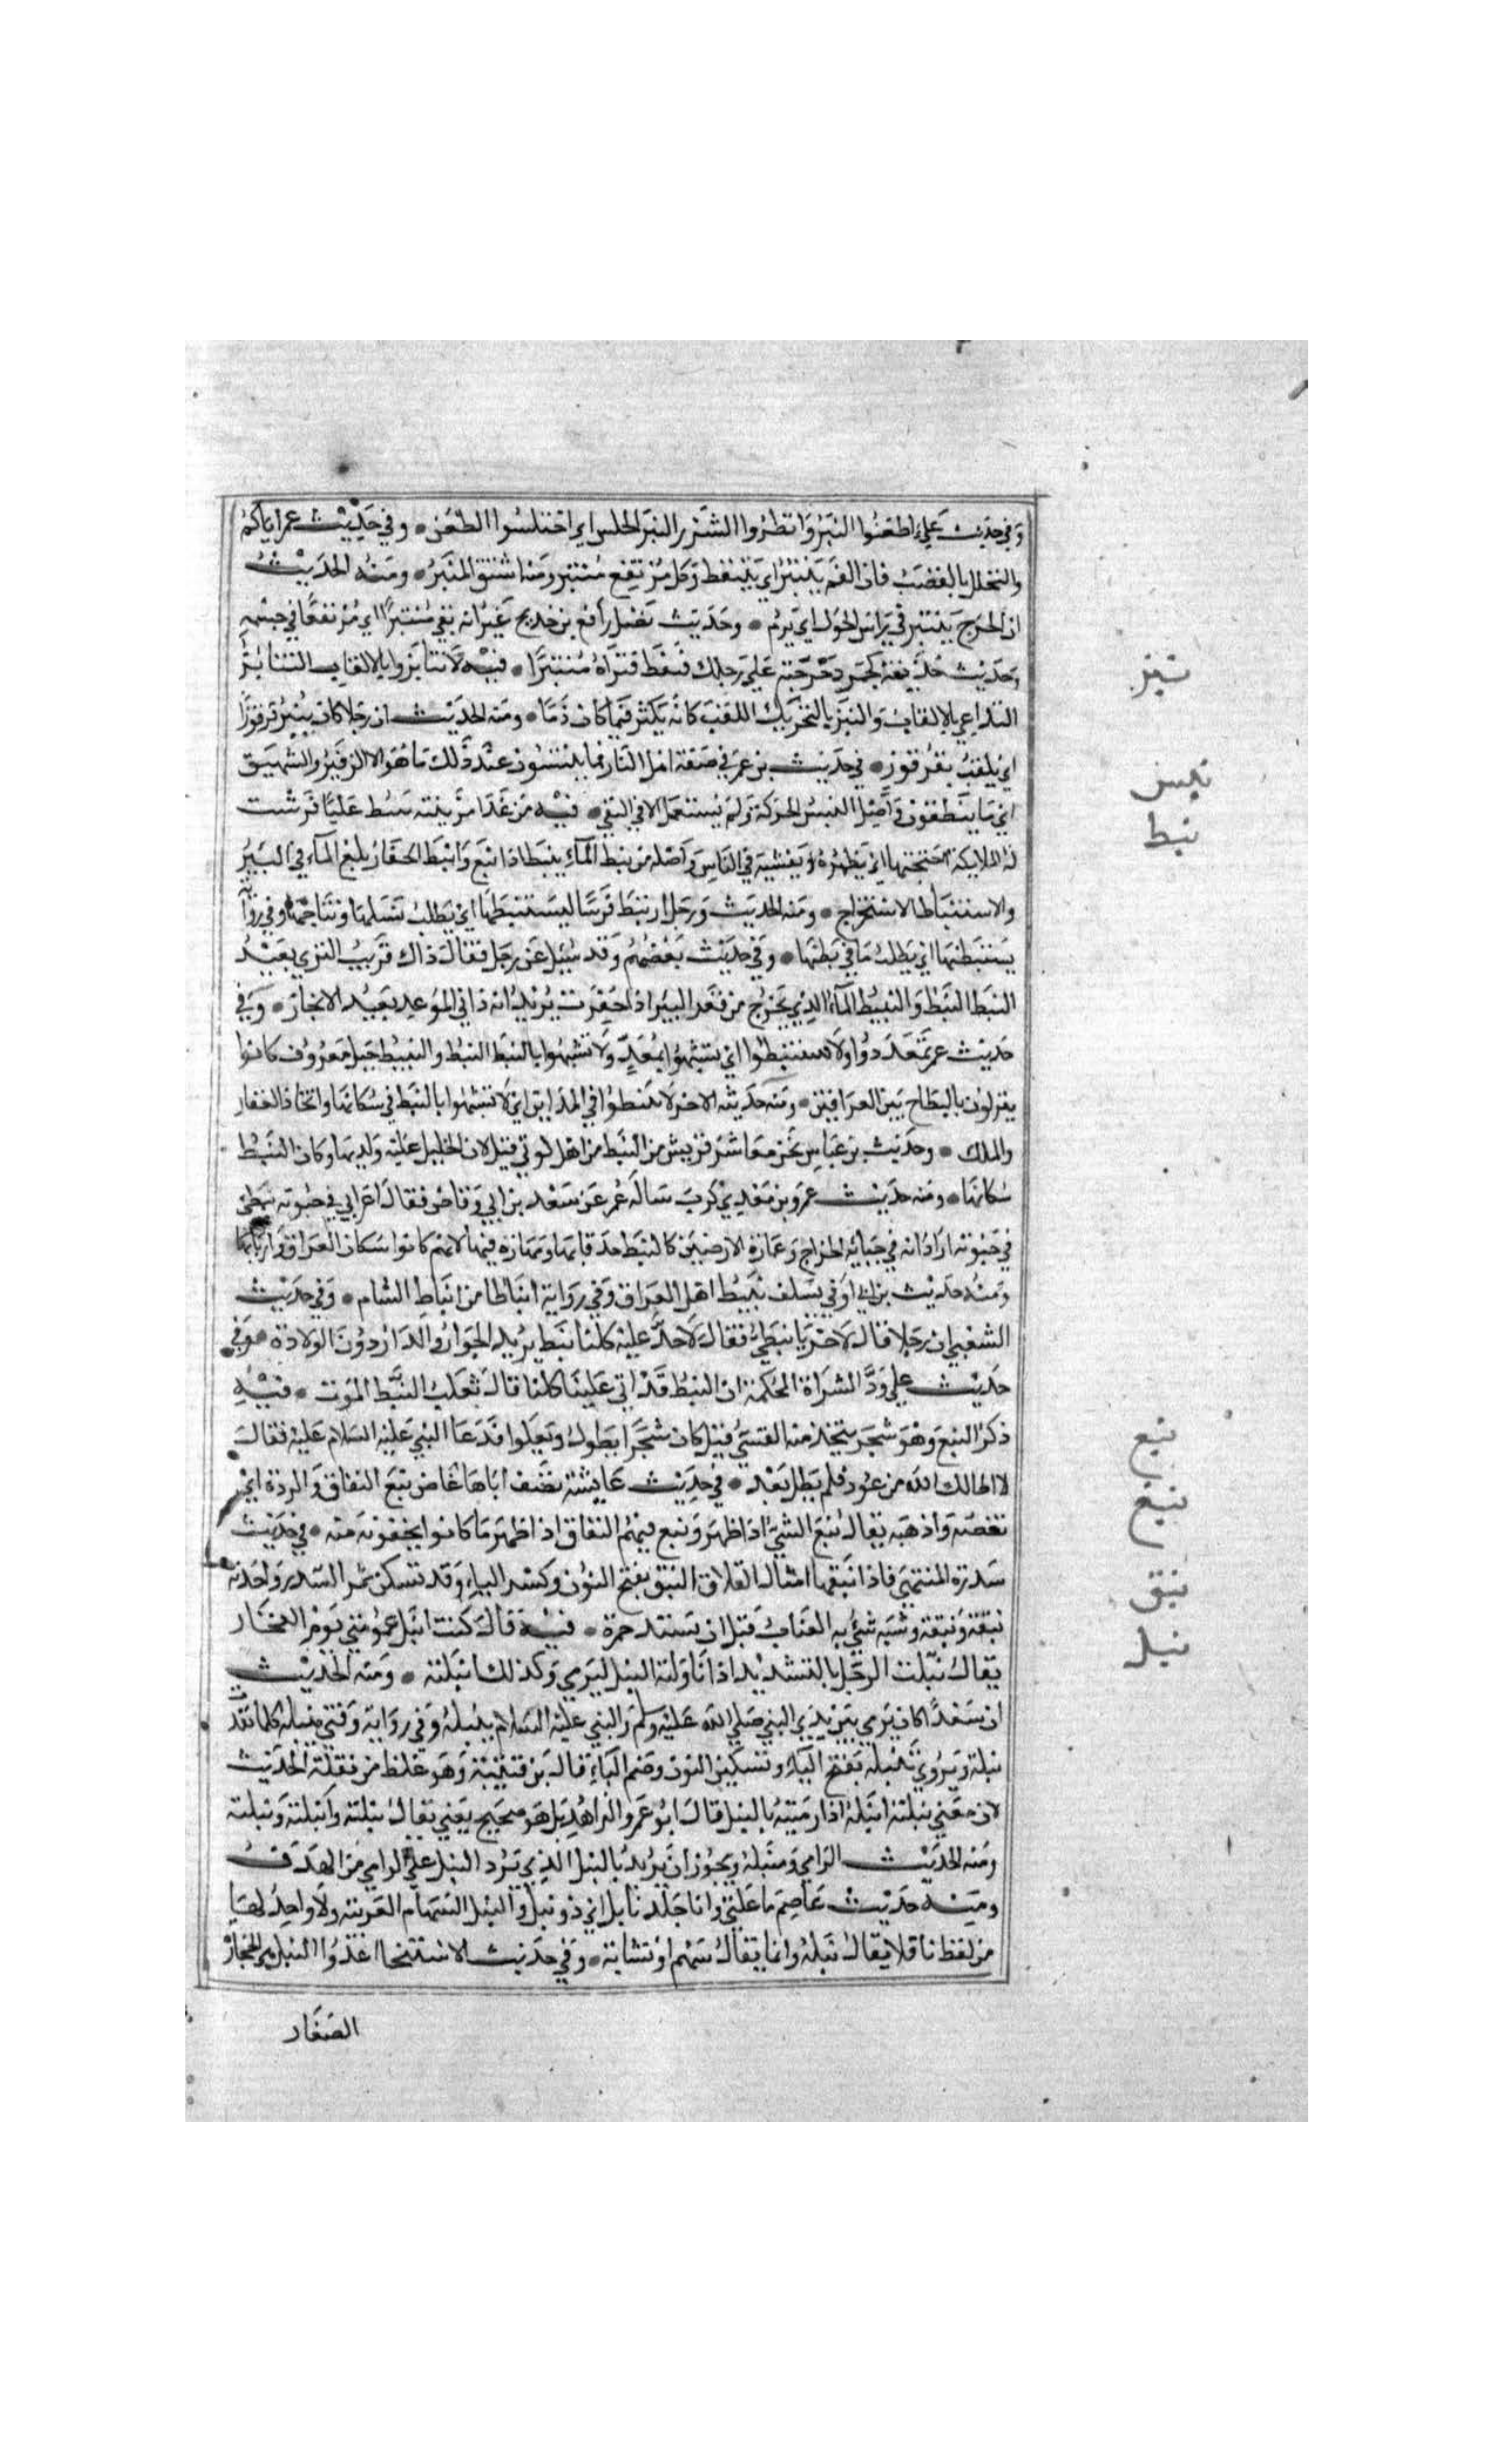 وفي حديث علي اطعنوا النبر وانظروا الشزر النبر الخلس اي اختلسوا الطعن • وفي حديث عمر اياكم
والتخلل بالقصب فان الفم ينتبر اي يتنفط وكل مرتفع منتبر ومنه اشتق المنبر • ومنه الحديث
ان الجرح ينتبر في راس الحول اي يرم • وحديث نصل رافع بن خديج غير انه بقي منتبرا اي مرتفعا في جسمه
وحديث حذيفة كجمر دحرجته علي رجلك فنفط فتراه منتبرا • فيه لا تنابزوا بالالقاب التنابز
نبز
التداعي بالالقاب والنبز بالتحريك اللقب كانه يكثر فيما كان ذما • ومنه الحديث ان رجلا كان ينبز قرقورا
اي يلقب بقرقور • في حديث بن عمر في صفة اهل النار فما ينبسون عند ذلك ما هو الا الزفير والشهيق
نبس
اي ما ينطقون واصل النبس الحركة ولم يستعمل الا في النفي • فيه من غدا من بيته ينبط علما فرشت
نبط
له الملايكة اجنحتها اي يظهره ويفشيه في الناس واصله من نبط الماء ينبط اذا نبع وانبط الحفار بلغ الماء في البير
والاستنباط الاستخراج • ومنه الحديث ورجل ارتبط فرسا ليستنبطها اي يطلب نسلها ونتاجها وفي رواية
يستبطنها اي يطلب ما في بطنها • وفي حديث بعضهم وقد سيل عن رجل فقال ذاك قريب الثري بعيد
النبط النبط والنبيط الماء الذي يخرج من قعر البير اذا حفرت يريد انه داني الموعد بعيد الانجاز • وفي
حديث عمر تمعددوا ولا تستنبطوا اي تشبهوا بمعد ولا تشبهوا بالنبط النبط والنبيط جيل معروف كانوا
ينزلون بالبطائح بين العراقين • ومنه حديثه الاخر لا تنبطوا في المداين اي لا تشبهوا بالنبط في سكانها واتخاذ العقار
والملك • وحديث بن عباس نحن معاشر قريش من النبط من اهل كوثي قيل لان الخليل عليه ولد بها وكان النبط
سكانها • ومنه حديث عمرو بن معدي كرب ساله عمر عن سعد بن ابي وقاص فقال اعرابي في حبوته نبطي
في حبوته اراد انه في جباية الخراج وعمارة الارضين كالنبط حذقا بها ومهارة فيها لانهم كانوا سكان العراق واربابها
ومنه حديث بن ابي اوفي نسلف نبيط اهل العراق وفي رواية انباطا من انباط الشام • وفي حديث
الشعبي ان رجلا قال لاخر يا نبطي فقال لا حد عليه كلنا نبط يريد الجوار والدار دون الولادة • وفي
حديث علي ود الشراة المحكمة ان النبط قد اتي علينا كلنا قال ثعلب النبط الموت • فيه
ذكر النبع وهو شجر يتخذ منه القسي قيل كان شجرا يطول ويعلوا فدعا النبي عليه السلام عليه فقال
نبع
لا اطالك الله من عود فلم يطل بعد • في حديث عايشة تصف اباها غاض نبغ النفاق والردة اي
نبغ
نقصه واذهبه يقال نبغ الشي اذا ظهر ونبغ فيهم النفاق اذا ظهر ما كانوا يخفونه منه • في حديث
سدرة المنتهي فاذا نبقها امثال القلال النبق بفتح النون وكسر الباء وقد تسكن ثمر السدر واحدته
نبق
نبقة ونبقة وشبه شي به العناب قبل ان تشتد حمرة • فيه قال كنت انبل عمومتي يوم الفجار
نبل
يقال نبلت الرجل بالتشديد اذا ناولته النبل ليرمي وكذلك انبلته • ومنه الحديث
ان سعدا كان يرمي بين يدي النبي صلي الله عليه وسلم والنبي عليه السلام ينبله وفي رواية وفتي ينبله كلما نفدت
نبله ويروي تنبله بفتح الياء وتسكين النون وضم الباء قال بن قتيبة وهو غلط من نقلة الحديث
لان معني نبلته انبله اذا رميته بالنبل قال ابو عمرو الزاهد بل هو صحيح يعني يقال نبلته وانبلته ونبلته
ومنه الحديث الرامي ومنبله ويجوز ان يريد بالنبل الذي يرد النبل علي الرامي من الهدف
ومنه حديث عاصم ما علتي وانا جلد نابل اي ذو نبل والنبل السهام العربية ولا واحد لها
من لفظها فلا يقال نبلة وانما يقال سهم او نشابة • وفي حديث الاستنجا اعدوا النبل هي الحجارة
الصغار